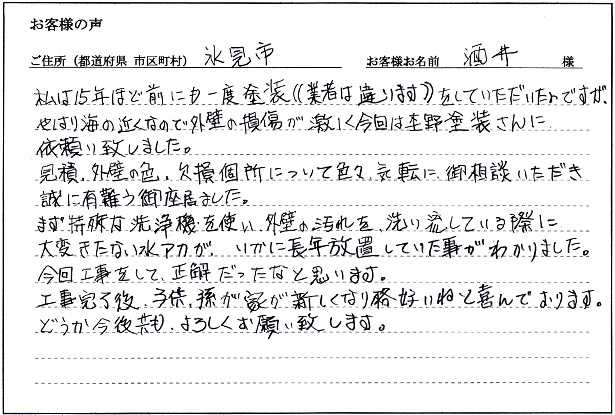 お客様の声
ご住所（都道府県 市区町村） 氷見市 お客様お名前 酒井 様
私は15年ほど前にも一度塗装（（業者は違います））をしていただいたのですが、
やはり海の近くなので外壁の損傷が激しく今回は杢野塗装さんに
依頼い致しました。
見積、外壁の色、欠損個所について色々、気転に、御相談いただき
誠に有難う御座居ました。
まず特殊な洗浄機を使い、外壁の汚れを、洗い流している際に
大変きたない水アカが、いかに長年放置していた事がわかりました。
今回工事をして、正解だったなと思います。
工事完了後、子供、孫が家が新しくなり格好いいねと喜んでおります。
どうか今後共も、よろしくお願い致します。